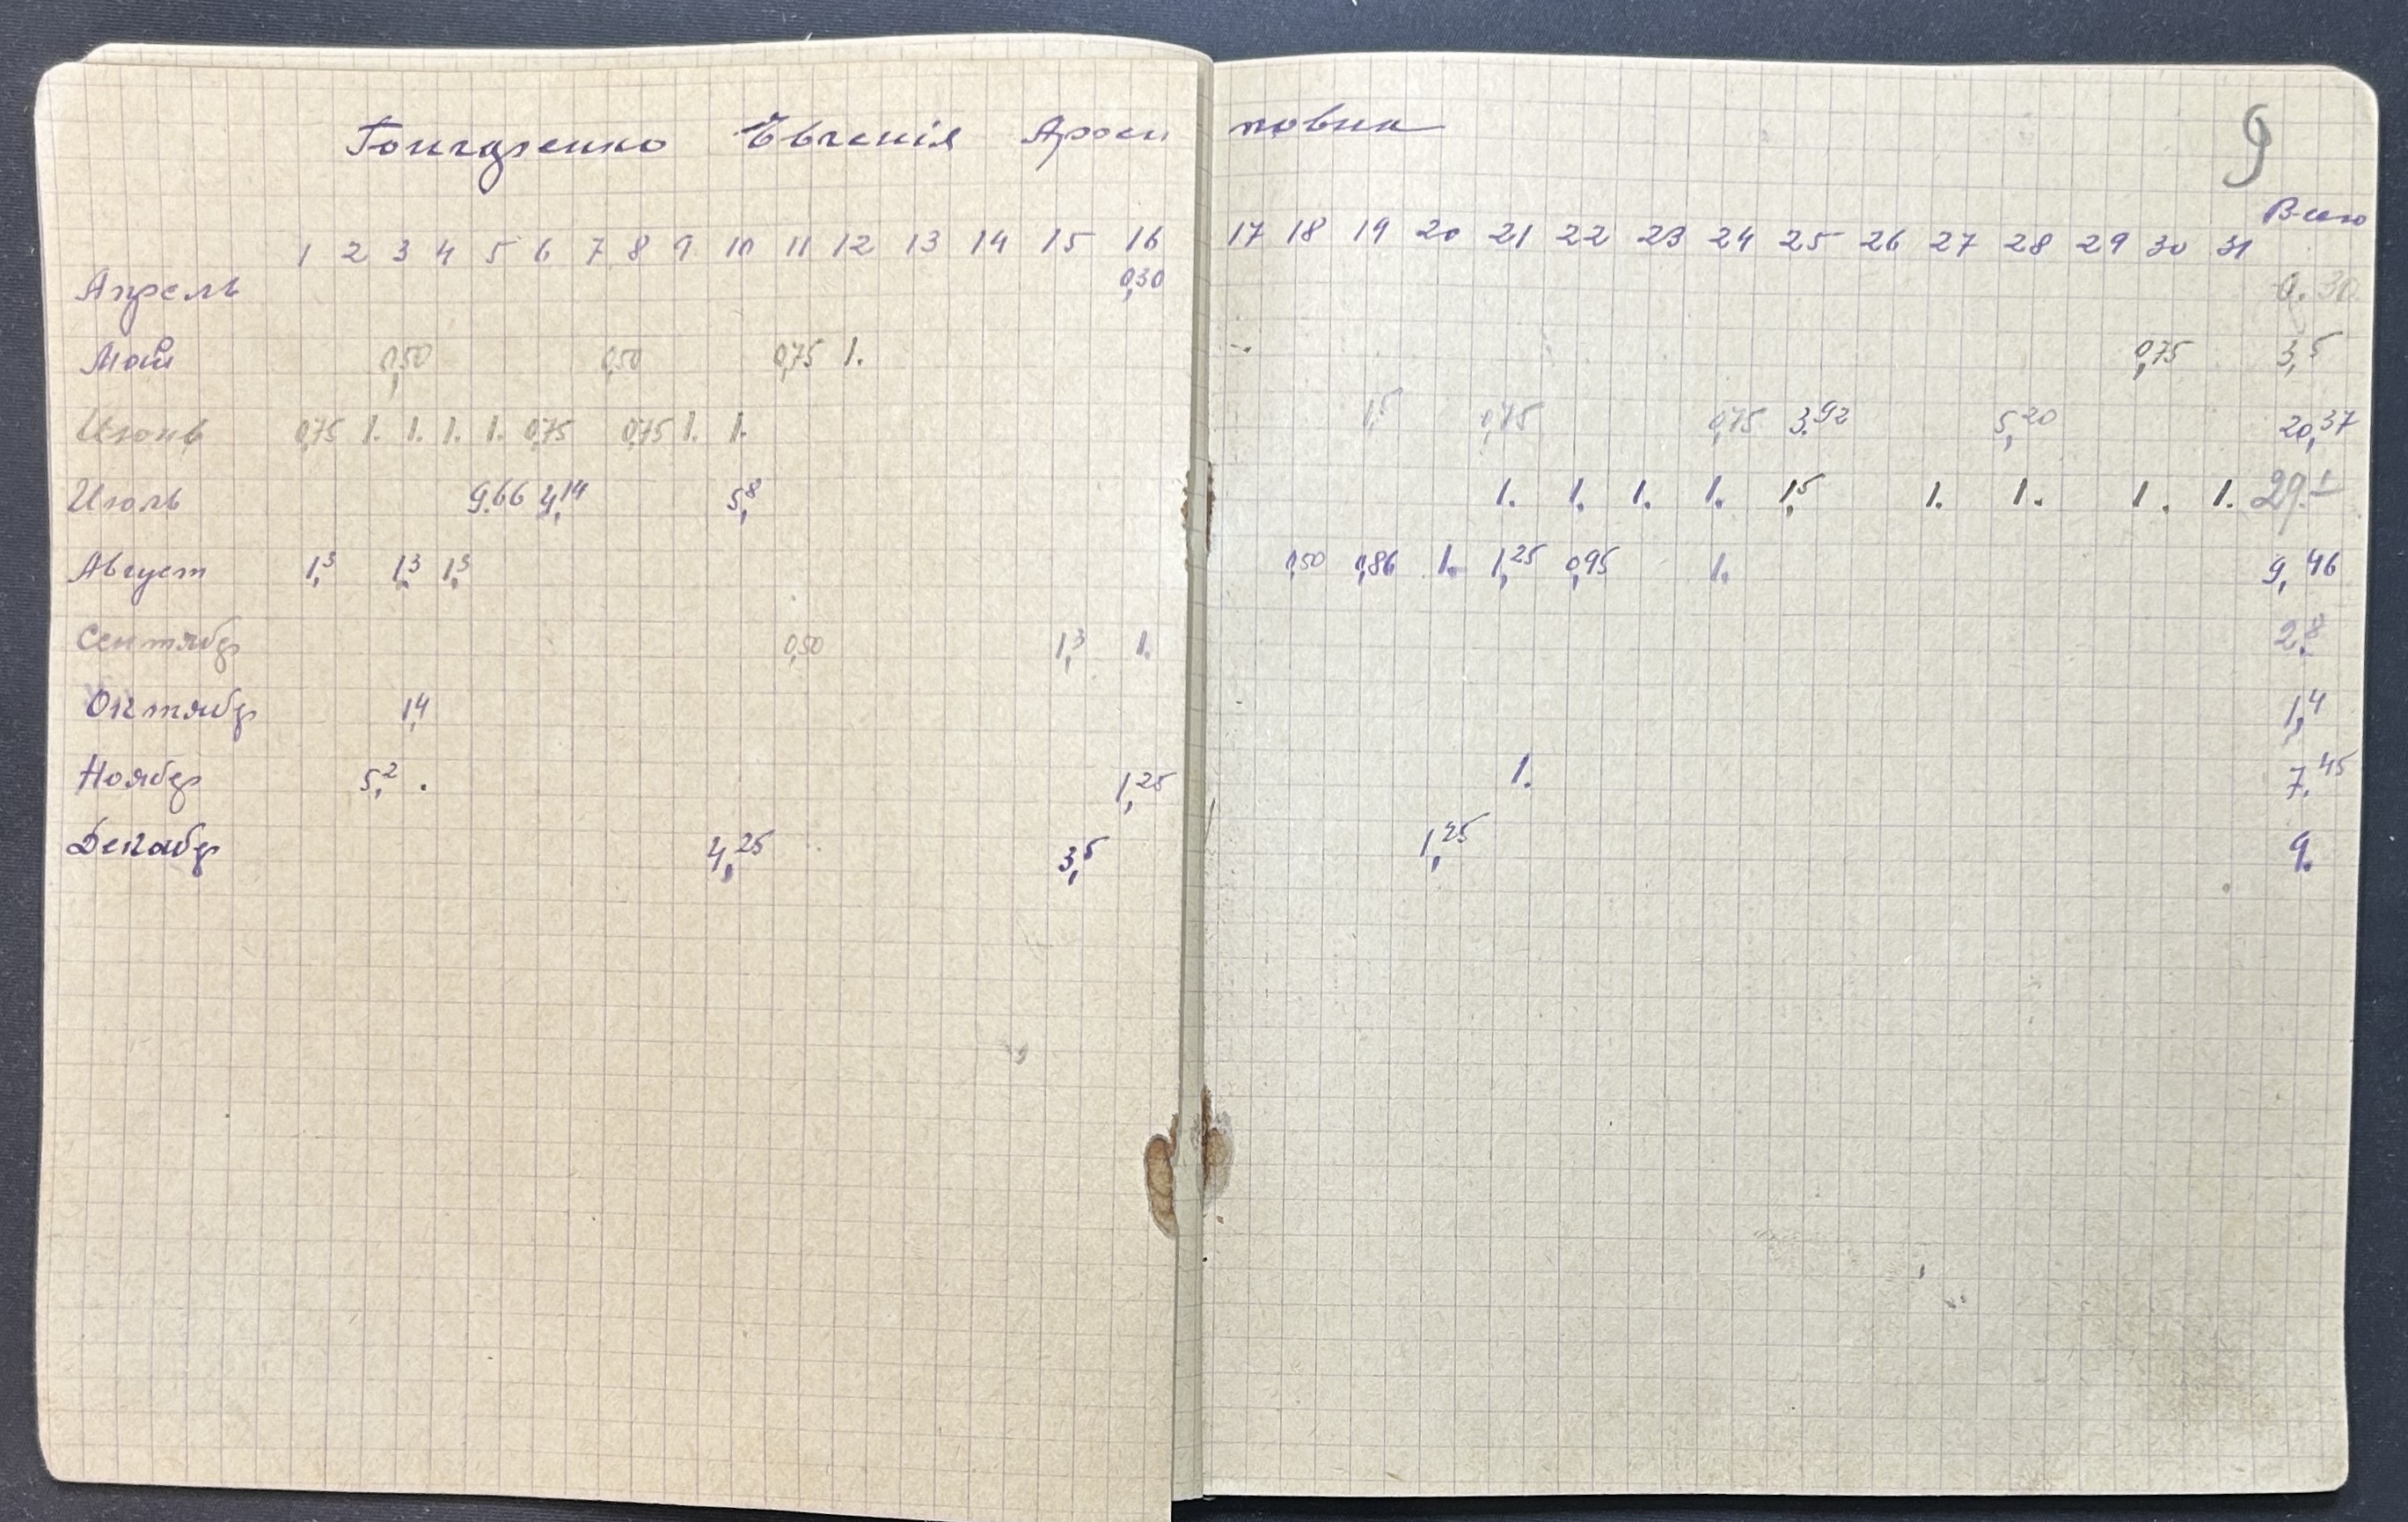 Гончаренко Євгенія Ароси повна
9
Всего
1 2 3 4 5 6 7 8 9 10 11 12 13 14 15 16 17 18 19 20 21 22 23 24 25 26 27 28 29 30 31
Апрель 0,30 0.30
Май 0,50 0,50 0,75 1. 0,75 3,5
Июнь 0,75 1. 1. 1. 1. 0,75 0,75 1. 1. 1,5 0,75 0,75 3.92 5,20 20,37
Июль 9.66 4,14 5,8 1. 1. 1. 1. 1,5 1. 1. 1. 1. 29.1
Август 1,3 1,3 1,3 0,50 0,86 1. 1,25 0,95 1. 9,46
Сентябр 0,50 1,3 1. 2.8
Октябр 1,4 1,4
Ноябр 5,2 . 1,25 1. 7.45
Декабр 4,25 3,5 1,25 9.